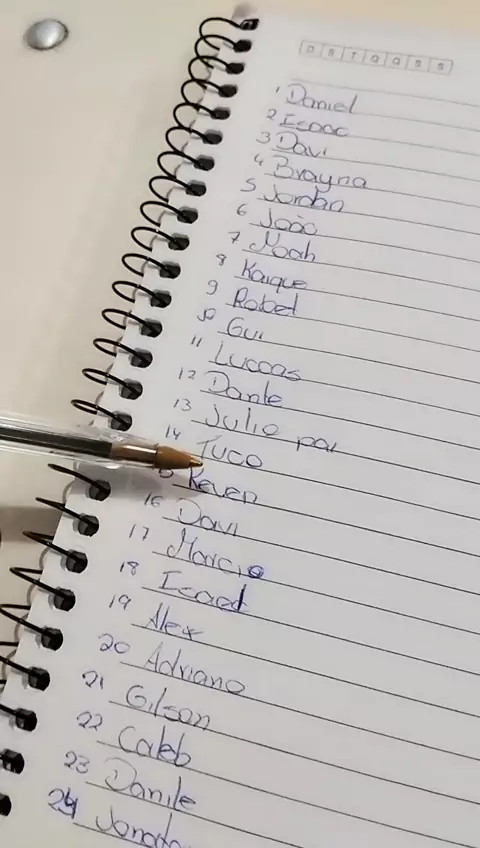 D S T Q Q S S
1 Daniel
2 Isaac
3 Davi
4 Brayna
5 Jordan
6 João
7 Noah
8 Kaique
9 Robel
10 Gui
11 Luccas
12 Dante
13 Julio pai
14 Tuco
Keven
16 Davi
17 Marcio
18 Israel
19 Alex
20 Adriano
21 Gilson
22 Caleb
23 Danile
24